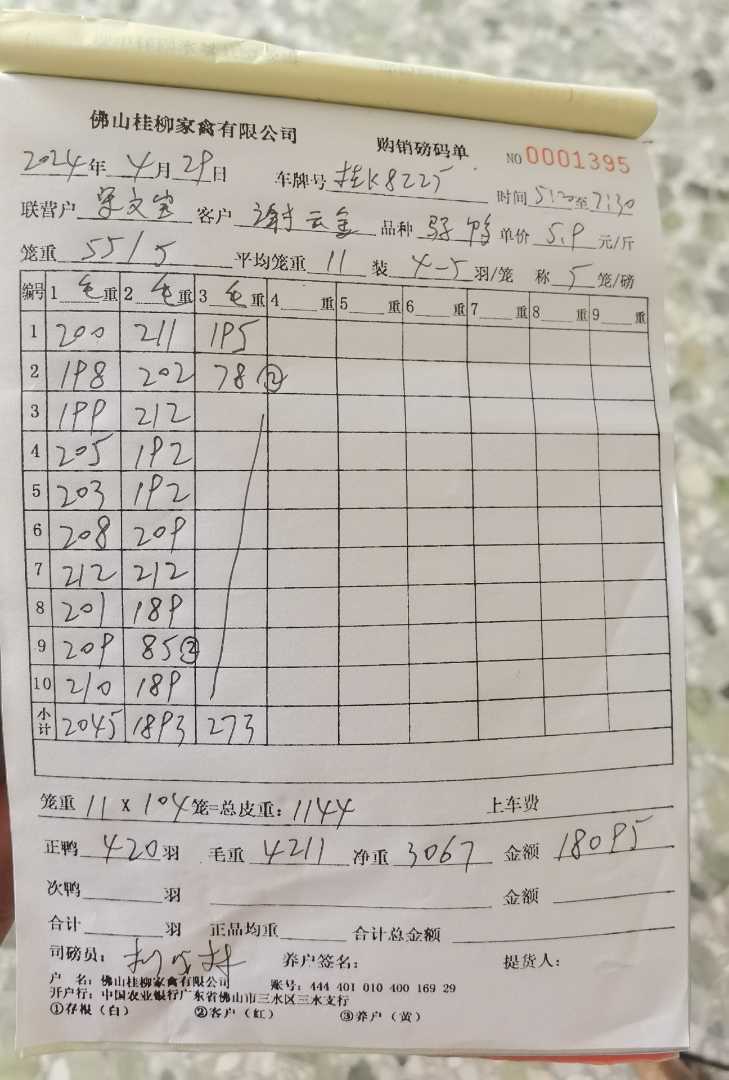 佛山桂柳家禽有限公司 购销磅码单 NO 0001395
2024年 4月 29日 车牌号 桂K8225 时间 5:20至7:30
联营户 客户 谢云金 品种 单价 5.9 元/斤
笼重 55/5 平均笼重 11 装 4-5 羽/笼 称 5 笼/磅
编号 1 毛重 2 毛重 3 毛重 4 重 5 重 6 重 7 重 8 重 9 重
1 200 211 195
2 198 202 78 ②
3 199 212
4 205 192
5 203 192
6 208 209
7 212 212
8 201 189
9 209 85 ②
10 210 189
小计 2045 1893 273
笼重 11 x 104 笼=总皮重: 1144 上车费
正鸭 420 羽 毛重 4211 净重 3067 金额 18095
次鸭 羽 金额
合计 羽 正品均重 合计总金额
司磅员: 养户签名: 提货人:
户 名: 佛山桂柳家禽有限公司 账号: 444 401 010 400 169 29
开户行: 中国农业银行广东省佛山市三水区三水支行
①存根（白） ②客户（红） ③养户（黄）